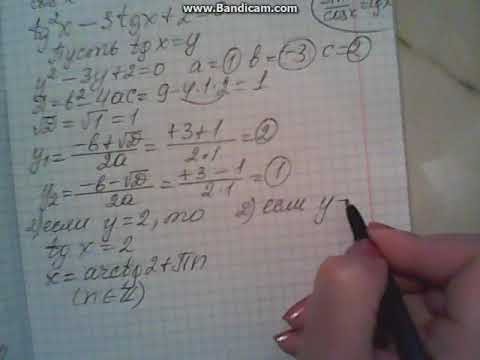 www.Bandicam.com
tg²x - 3tgx + 2 =
Пусть tg x = y
y² - 3y + 2 = 0 a = 1 b = -3 c = 2
D = b² - 4ac = 9 - 4·1·2 = 1
√D = √1 = 1
y₁ = (-b + √D)/2a = (+3 + 1)/(2·1) = 2
y₂ = (-b - √D)/2a = (+3 - 1)/(2·1) = 1
если y = 2, то 2) если y =
tg x = 2
x = arctg 2 + πn
(n ∈ Z)